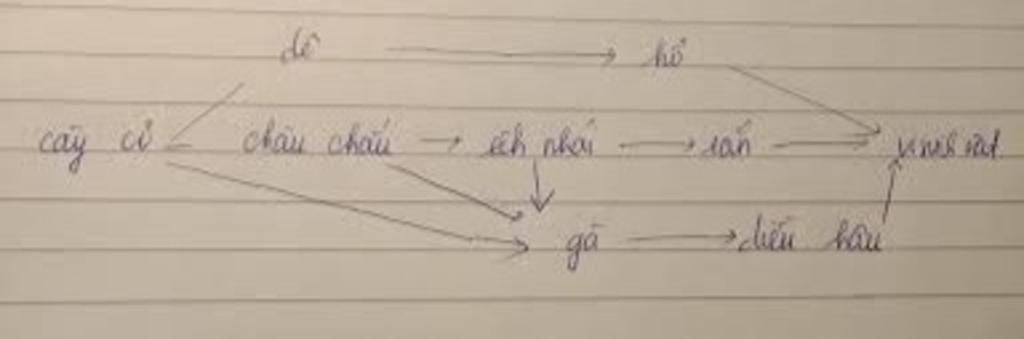 dê → hổ
cây cỏ châu chấu → ếch nhái → rắn → vi sinh vật
gà → diều hâu